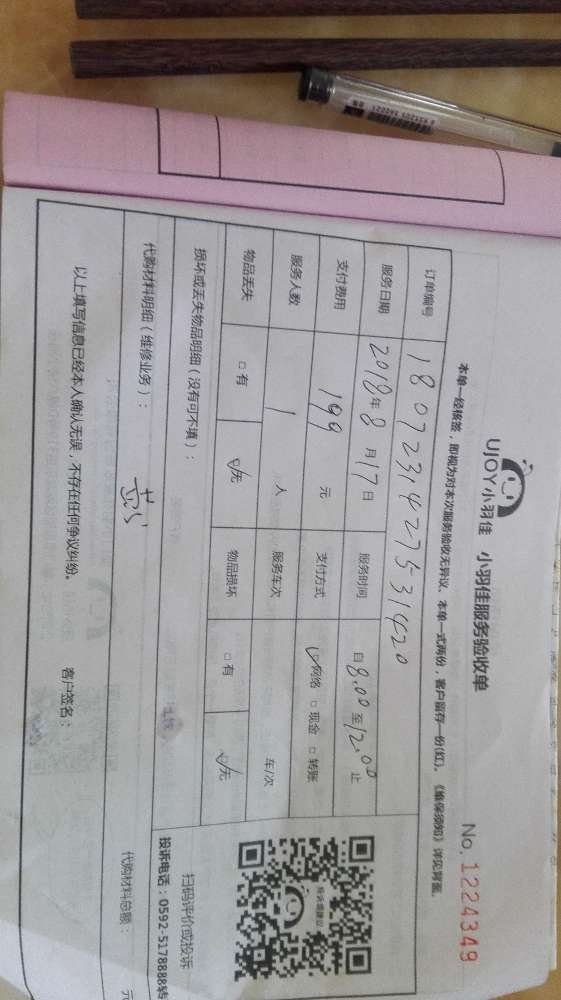 UJOY小羽佳 小羽佳服务验收单
No. 1224349
本单一经核签,即视为对本次服务验收无异议。本单一式两份,客户留存一份(红)。《维保须知》详见背面。
订单编号 1807231427531420
服务日期 2018年8月17日 服务时间 自8:00至12:00止
支付费用 199 元 支付方式 ☑网络 □现金 □转账
服务人数 1 人 服务车次 车/次
物品丢失 □有 ☑无 物品损坏 □有 ☑无
扫码评价或投诉
投诉电话:0592-5178888转
损坏或丢失物品明细(没有可不填):
代购材料明细(维修业务): 代购材料总额: 元
以上填写信息已经本人确认无误,不存在任何争议纠纷。 客户签名:
6 921201 340021